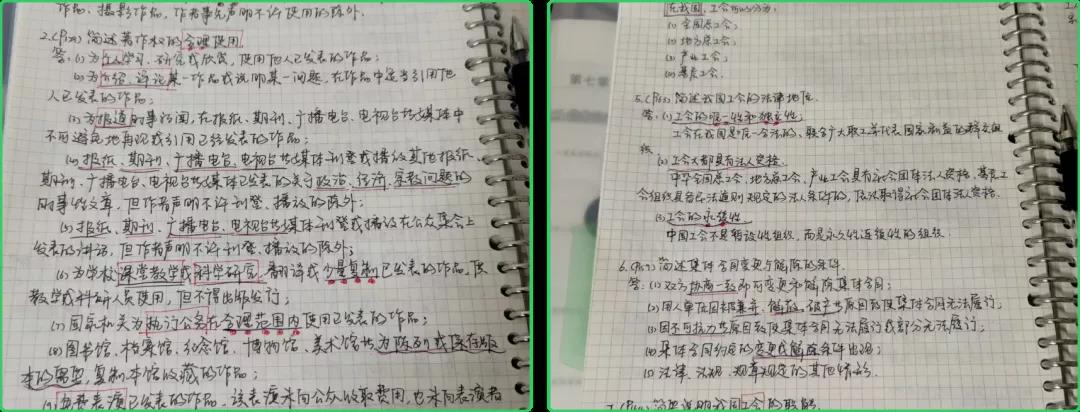 作品、摄影作品,作者事先声明不许使用的除外.
2.(P129)简述著作权的合理使用
答:(1)为个人学习、研究或欣赏,使用他人已发表的作品;
(2)为介绍、评论某一作品或说明某一问题,在作品中适当引用他
人已发表的作品;
(3)为报道时事新闻,在报纸、期刊、广播电台、电视台等媒体中
不可避免地再现或引用已经发表的作品;
(4)报纸、期刊、广播电台、电视台等媒体刊登或播放其他报纸、
期刊、广播电台、电视台等媒体已发表的关于政治、经济、宗教问题的
的事性文章,但作者声明不许刊登、播放的除外;
(5)报纸、期刊、广播电台、电视台等媒体刊登或播放在公众集会上
发表的讲话,但作者声明不许刊登、播放的除外;
(6)为学校课堂教学或科学研究,翻译或少量复制已发表的作品,供
教学或科研人员使用,但不得出版发行;
(7)国家机关为执行公务在合理范围内使用已发表的作品;
(8)图书馆、档案馆、纪念馆、博物馆、美术馆等为陈列或保存版
本的需要,复制本馆收藏的作品;
(9)免费表演已发表的作品,该表演未向公众收取费用,也未向表演者
在我国,工会
(1)全国总工会;
(2)地方总工会;
(3)产业工会;
(4)基层工会.
5.(P153)简述我国工会的法律地位.
答:(1)工会的唯一性和独立性.
工会在我国是唯一合法的、联合广大职工并代表国家利益的群众组
织
(2)工会大都具有法人资格.
中华全国总工会、地方总工会、产业工会具有社会团体法人资格.基层工
会组织具备民法通则规定的法人条件的,依法取得社会团体法人资格.
(3)工会的永续性
中国工会不是暂设性组织,而是永久性连续性的组织.
6.简述集体合同变更与解除的条件.
答:(1)双方协商一致即可变更和解除集体合同;
(2)用人单位因被兼并、解散、破产等原因致使集体合同无法履行;
(3)因不可抗力等原因致使集体合同无法履行或部分无法履行;
(4)集体合同约定的变更或解除条件出现;
(5)法律、法规、规章规定的其他情形.
7.简要说明我国工会的职能.
第七章